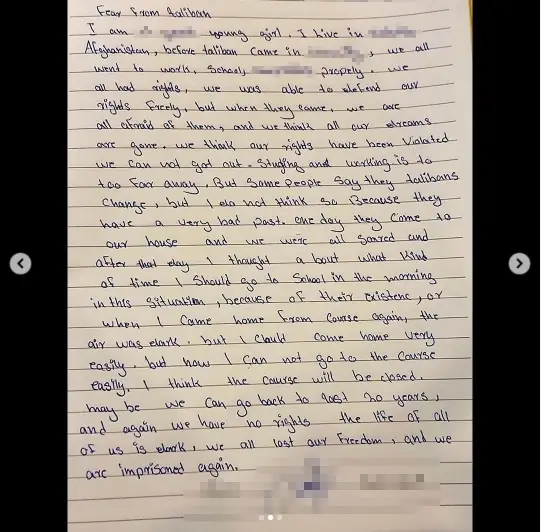 Fear From taliban
I am a young girl. I live in
Afghanistan, before taliban came in , we all
went to work, School, proprly. we
all had rights, we was able to defend our
rights Freely. but when they came, we are
all afraid of them, and we think all our dreams
are gone. we think our rights have been Violated
we can not got out. Studing and working is to
too Far away, But Some people Say they talibans
Change, but I do not think So Because they
have a very bad past. one day they come to
our house and we were all Scared and
after that day I thought a bout what kind
of time I Should go to School in the morning
in this Situation, because of their existenc, or
when I came home From course again, the
air was dark. but I Could come home very
easily. but now I can not go to the Course
easily, I think the course will be closed.
may be we can go back to last 20 years,
and again we have no rights the life of all
of us is dark, we all lost our Freedom, and we
are imprisoned again.